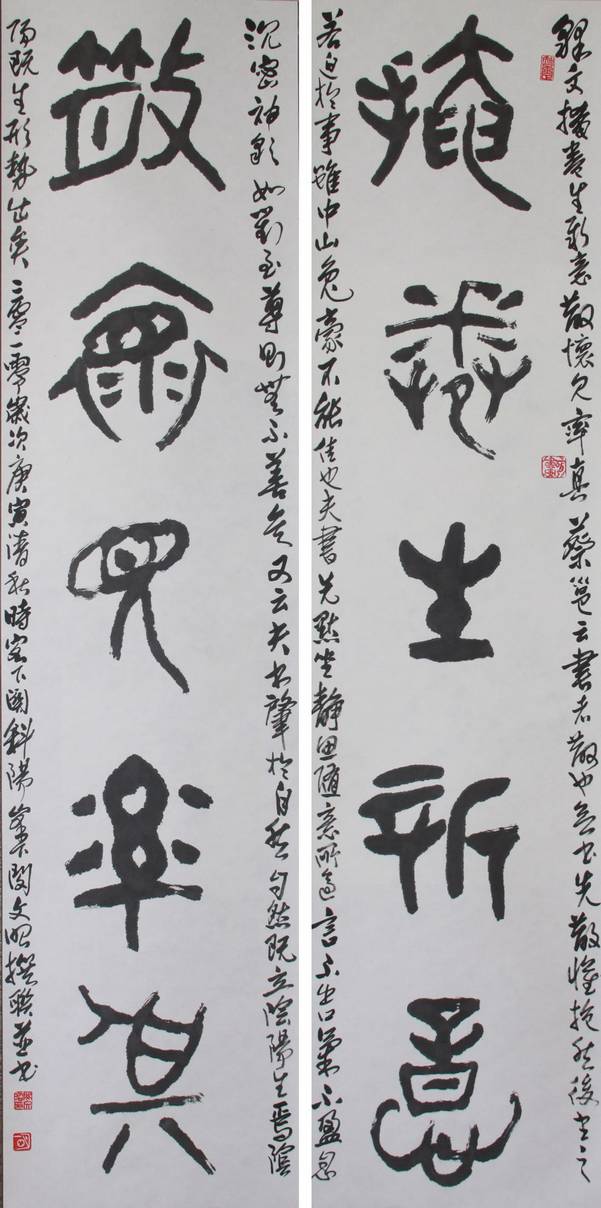 掩卷生新意
散懷見率真
釋文掩卷生新意散懷見率真蔡邕云書者散也欲書先散懷抱然後書之
若迫於事雖中山兔豪不能佳也夫書先默坐靜思隨意所適言不出口氣不盈息
沉密神彩如對至尊則無不善矣又云夫書肇於自然自然既立陰陽生焉陰
陽既生形勢出矣二零一零歲次庚寅清秋時客下關斜陽峯下文撰聯並書